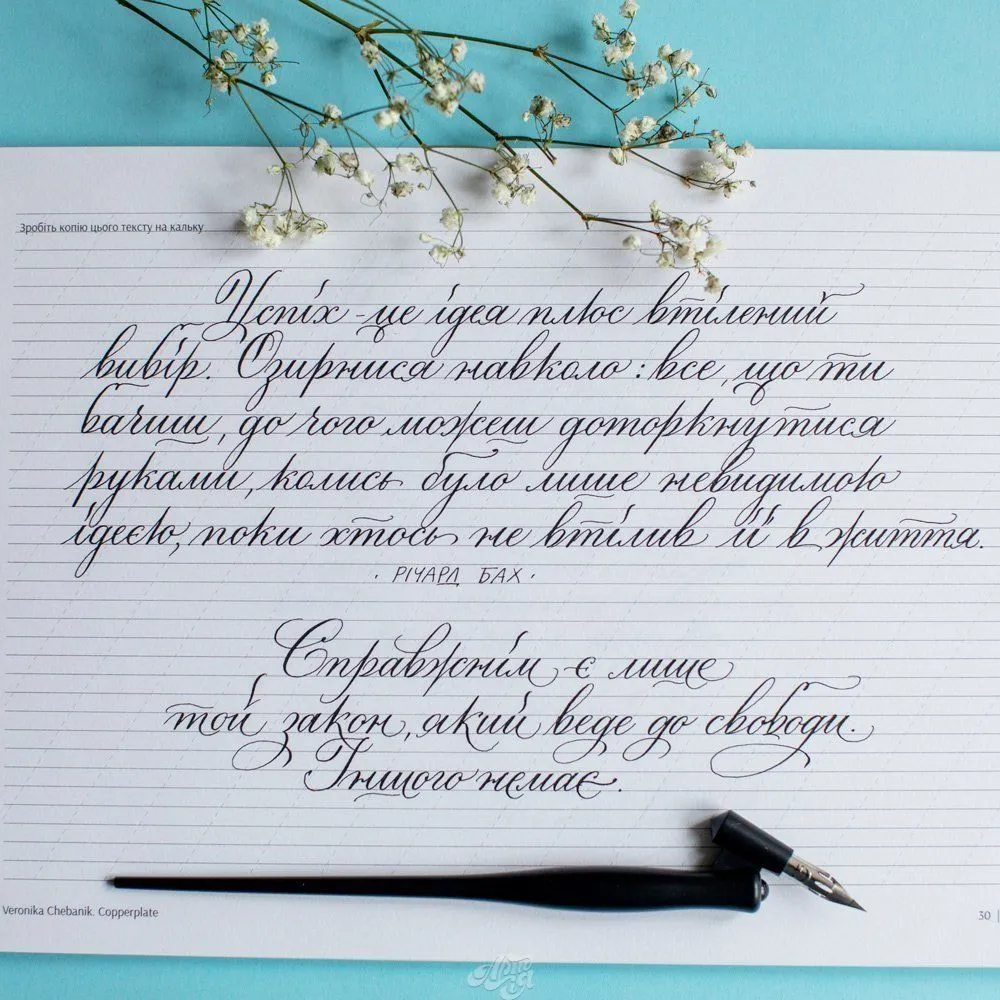 Зробіть копію цього тексту на кальку
Успіх - це ідея плюс втілений
вибір. Озирнися навколо: все, що ти
бачиш, до чого можеш доторкнутися
руками, колись було лише невидимою
ідеєю, поки хтось не втілив її в життя.
· РІЧАРД БАХ ·
Справжнім є лише
той закон, який веде до свободи.
Іншого немає.
Veronika Chebanik. Copperplate
30 |